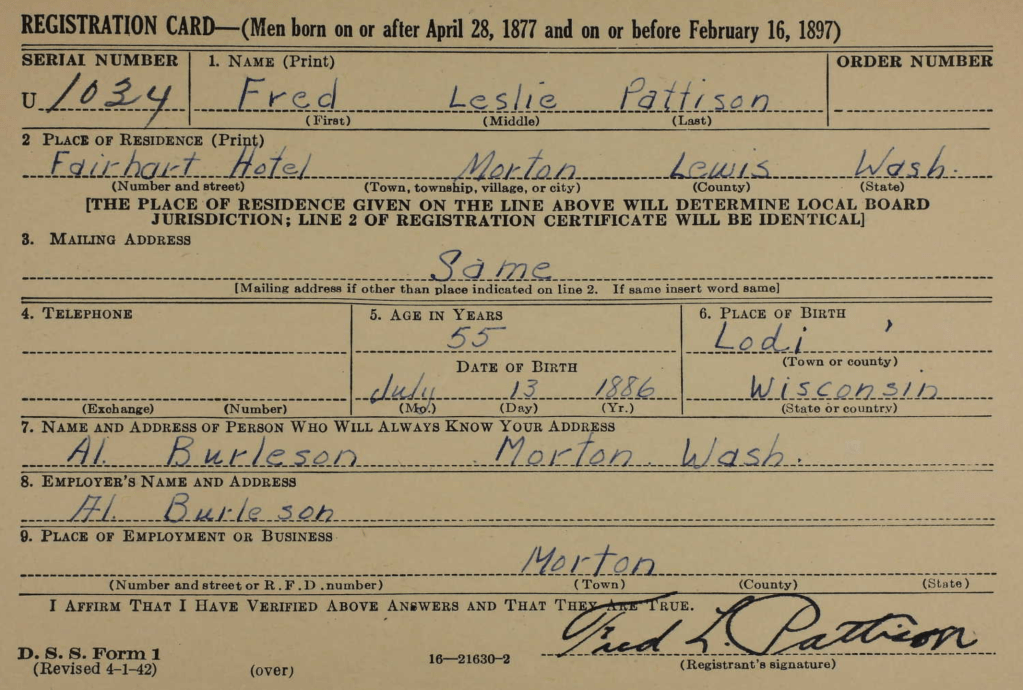 REGISTRATION CARD—(Men born on or after April 28, 1877 and on or before February 16, 1897)
SERIAL NUMBER 1. NAME (Print) ORDER NUMBER
U 1034 Fred Leslie Pattison
(First) (Middle) (Last)
2 PLACE OF RESIDENCE (Print)
Fairhart Hotel Morton Lewis Wash.
(Number and street) (Town, township, village, or city) (County) (State)
[THE PLACE OF RESIDENCE GIVEN ON THE LINE ABOVE WILL DETERMINE LOCAL BOARD
JURISDICTION; LINE 2 OF REGISTRATION CERTIFICATE WILL BE IDENTICAL]
3. MAILING ADDRESS
Same
[Mailing address if other than place indicated on line 2. If same insert word same]
4. TELEPHONE 5. AGE IN YEARS 6. PLACE OF BIRTH
55 Lodi,
(Town or county)
DATE OF BIRTH
July 13 1886 Wisconsin
(Exchange) (Number) (Mo.) (Day) (Yr.) (State or country)
7. NAME AND ADDRESS OF PERSON WHO WILL ALWAYS KNOW YOUR ADDRESS
Al. Burleson Morton. Wash.
8. EMPLOYER'S NAME AND ADDRESS
Al. Burleson
9. PLACE OF EMPLOYMENT OR BUSINESS
Morton
(Number and street or R. F. D. number) (Town) (County) (State)
I AFFIRM THAT I HAVE VERIFIED ABOVE ANSWERS AND THAT THEY ARE TRUE.
Fred L. Pattison
D. S. S. Form 1
(Revised 4-1-42) (over) 16—21630-2 (Registrant's signature)